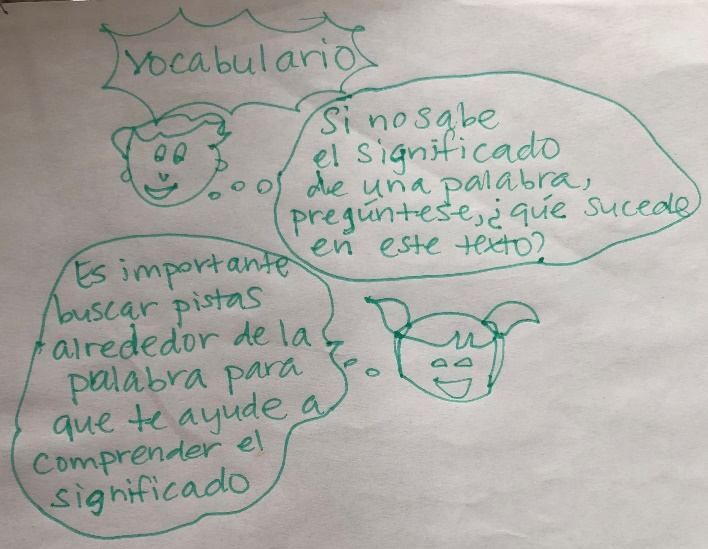 Vocabulario
Si no sabe
el significado
de una palabra,
pregúntese, ¿qúe sucede
en este texto?
Es importante
buscar pistas
alrededor de la
palabra para
que te ayude a
comprender el
significado